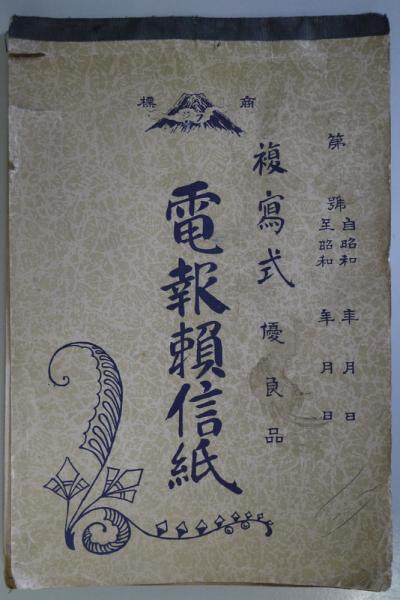 商標
フジ
第 號
自昭和 年 月 日
至昭和 年 月 日
複寫式 優良品
電報頼信紙